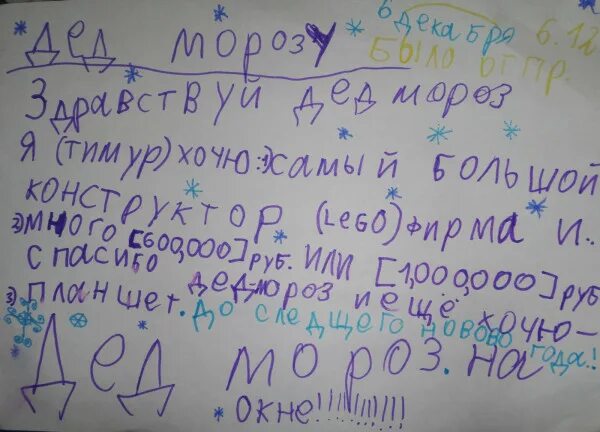 Дед морозу
6 декабря 6.12
Было отпр.
Здравствуй дед мороз
Я (тимур) хочю: 1) самый большой
конструктор (LEGO) фирма и..
2) много [600,000] руб. или [1,000,000] руб
спасибо дед-мороз и ещё хочю-
3) планшет. До следщего новово года!!
Дед мороз. на
окне!!!!!!!!!!